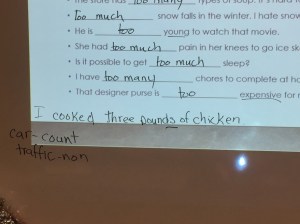 The store has too many types of soup. It's hard
• Too much snow falls in the winter. I hate snow
• He is too young to watch that movie.
• She had too much pain in her knees to go ice sk
• Is it possible to get too much sleep?
• I have too many chores to complete at ho
• That designer purse is too expensive for
I cooked three pounds of chicken
car-count
traffic-non